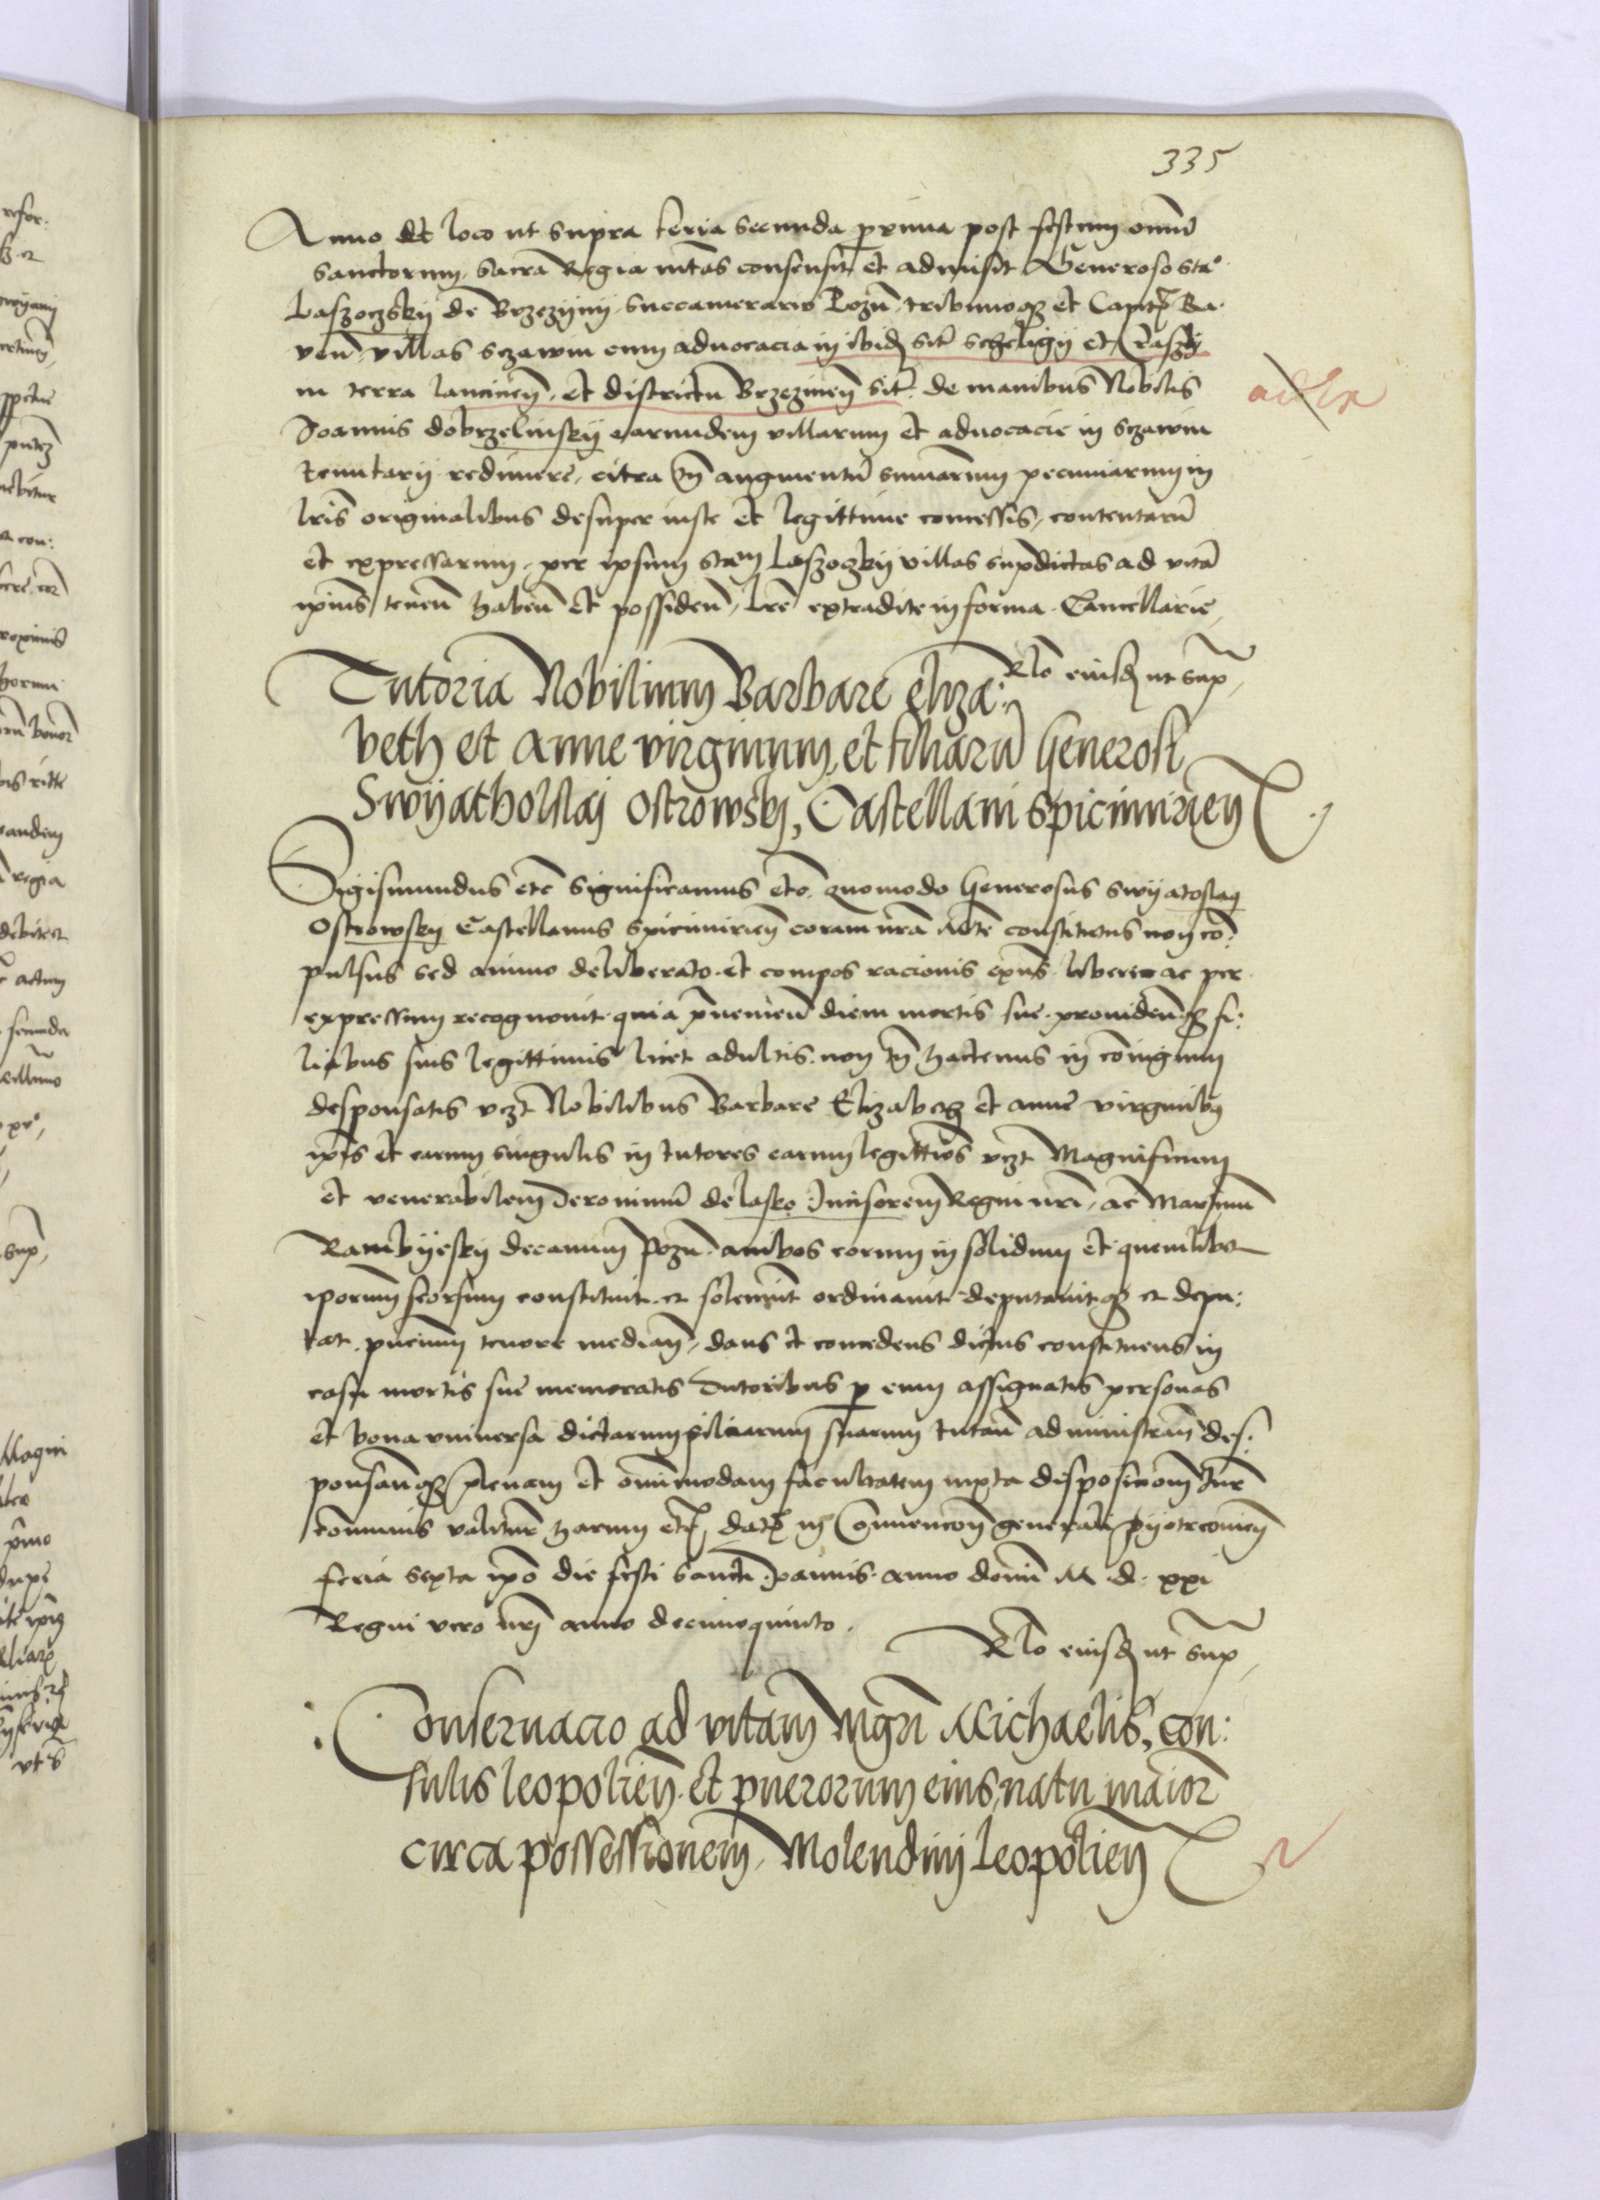 335
Anno et loco ut supra feria secunda proxima post festum omniū
sanctorum, sacra Regia mtas consensit et admisit Generoso Sta°
Laszoczskij de Brzezijnij succamerario Pozn̄ tribunoq3 et Capit Ra-
ven̄ villas sczawin cum advocacia in ibid sit scheligij et Raszij
in terra lancicien̄ et districtu Brzezinen̄ sit de manibus Nobilis
Joannis dobrzelinskij earundem villarum et advocacie in sczawin
tenutarij redimere, citra tn̄ augmentū summarum pecuniarum in
lris originalibus desuper iuste et legittime concessis, contentarū
et expressarum, per ipsum Stam Laszoczkij villas supdictas ad vitā
ipius tenen̄ haben̄ et possiden̄, lre extradite in forma Cancellarie,
Rlo eiusd ut sup,
Tutoria Nobilium Barbare eliza:
beth et anne virginum, et filiarū Generosi
Swijatholslaj ostrowskij, Castellani spicimirien̄
Sigismundus etc significamus etc. quomodo Generosus swijatoslaij
ostrowskij Castellanus spicimirien̄ coram nrā Mte constitutus non co:
pulsus sed animo deliberato et compos racionis expns libere ac per
expressum recognovit quia p̄venien̄ diem mortis sue providen̄q3 fi:
liabus suis legittimis licet adultis non tn̄ hactenus in coniugium
desponsatis vczt Nobilibus Barbare Elizabeth et anne virginibq
ipis et earum singulis in tutores earum legittimos vczt Magnificum
et venerabilem Jeronimū de lasko Incisorem Regni nri, ac Martinū
Rambijeskij decanum Pozn̄ ambos eorum in solidum et quemlibet
iporum seorsum constituit et solenniter ordinavit deputavitq3 et depu:
tat pncium tenore median̄, dans et concedens dictus constituens in
casu mortis sue memoratis Tutoribus p eum assignatis personas
et bona universa dictarum filiarum suarum tutan̄ administran̄ des:
ponsan̄q3 plenam et omnimodam facultatem iuxta disposicionem Jur
communis valitur harum etc, dat in Convencione generali Pijotrcovien̄
feria sexta ipo die festi Sancti Joannis anno domi M d xxi
Regni vero nri anno decimoquinto.
Rlo eiusd ut sup,
Conservacio ad vitam Mgri Michaelis, con:
sulis leopolien̄ et puerorum eius, natu maior
circa possessionem Molendini Leopolien̄